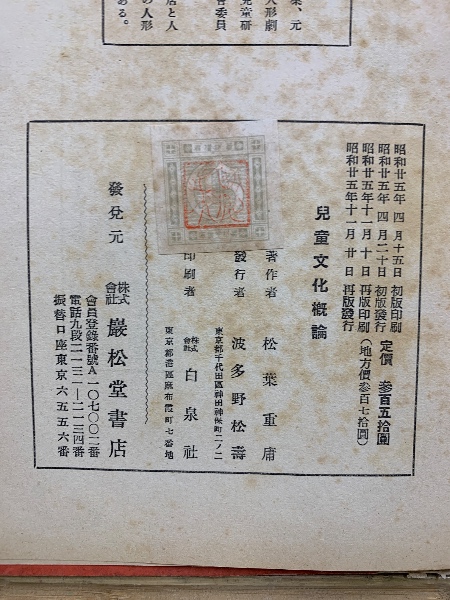 業、元
人形劇
児童研
委員
店と人
の人形
ある。
昭和廿五年四月十五日 初版印刷
昭和廿五年四月二十日 初版發行
昭和廿五年十一月十日 再版印刷
昭和廿五年十一月廿日 再版發行
定價 参百五拾圓
（地方價参百七拾圓）
兒童文化概論
著作者 松葉重庸
發行者 波多野松壽
東京都千代田區神田神保町二ノ二
印刷者 株式會社 白泉社
東京都港區麻布霞町七番地
發兌元
株式會社 巖松堂書店
會員登錄番號A一〇七〇〇二番
電話九段二一三二―二一三四番
振替口座東京六五五六番